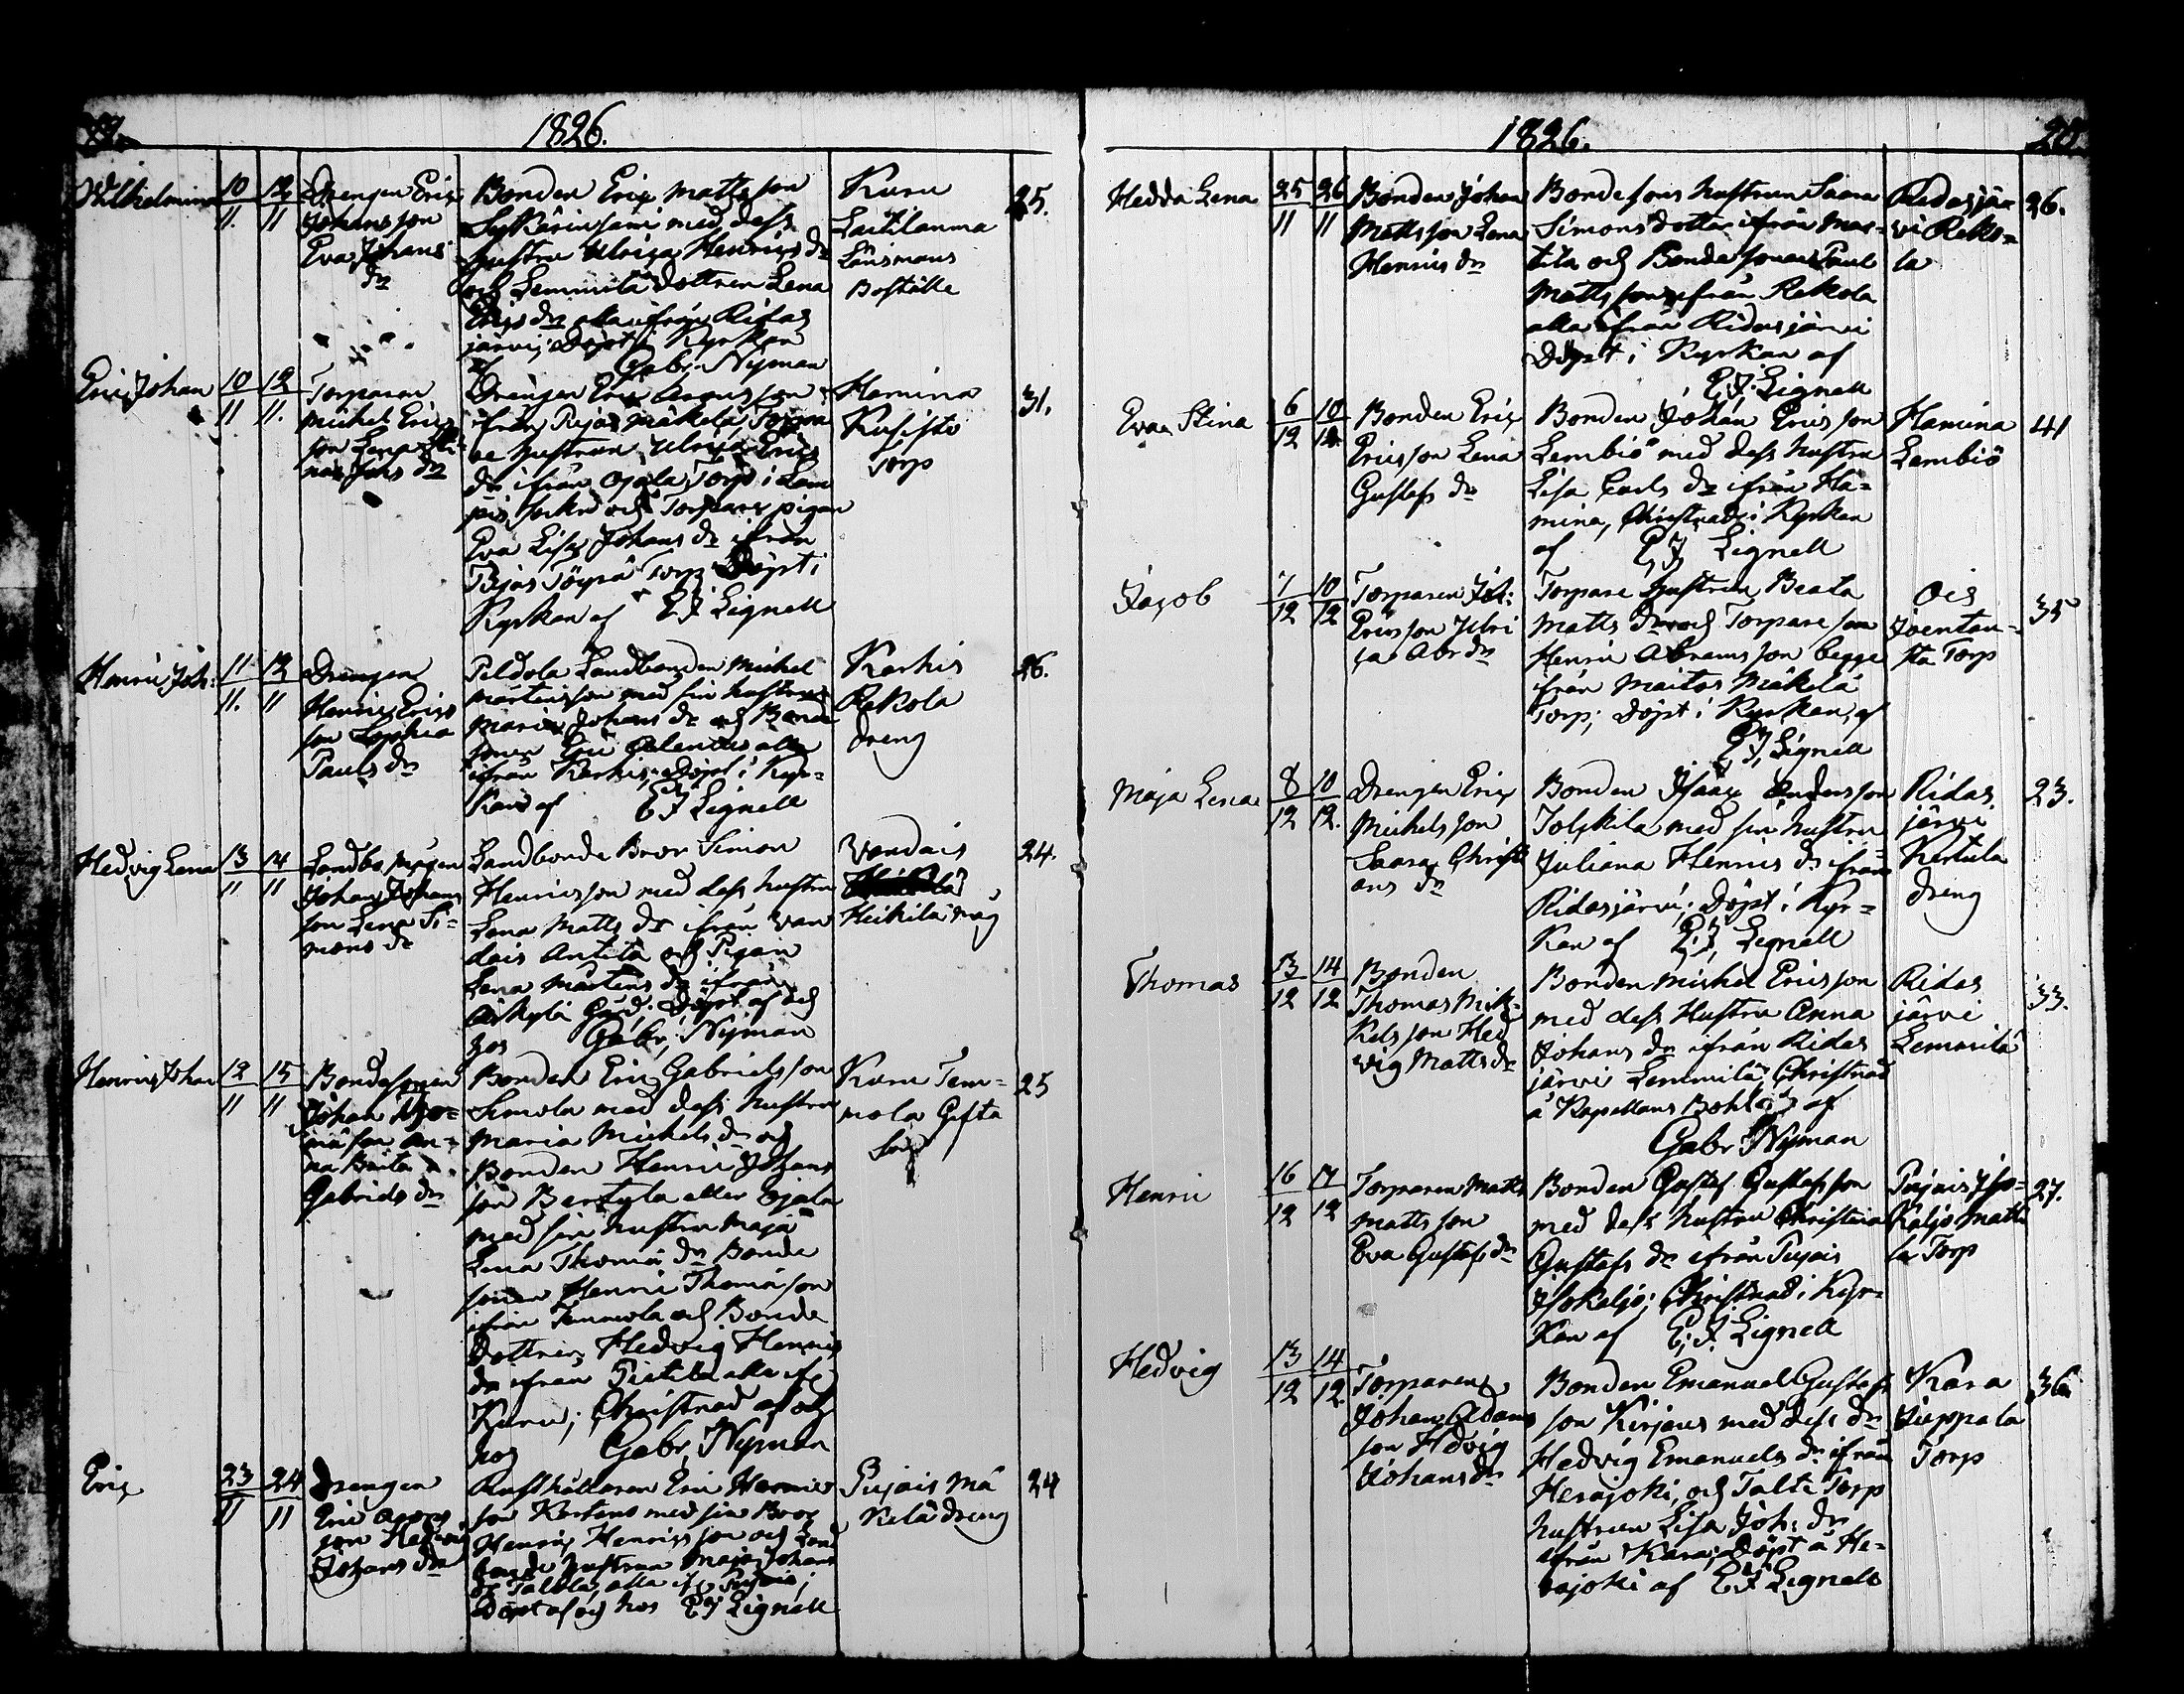 1826.
Wilhelmina
10 12
11. 11
Drengen Eric
Johansson
Eva Johans
dr
Bonden Eric Mattsson
med dess
hustru Ulrica Henrics dr
och Lemmilä dottren Lena
Erics dr alla ifrån Ridas
järvi; Döpt i Kyrkan
af Gabr. Nyman
Kuru
Laitilanma
Länsmans
Boställe
25.
Eric Johan
10 12
11 11.
Torparen
Michel Erics
son Lena Sti-
na Johs dr
Drengen Eric
ifrån Pijas Mäkelä, Torpa
re hustrun Ulrica Erics
dr ifrån Ojala Torp i Lam
pis Sockn och Torpare pigan
Eva Lisa Johans dr ifrån
Töyrä Torp Döpt i
Kyrkan af E J Lignell
Hamina
Kusisto
Torp
31.
Henric Joh:
11 12
11. 11
Drengen
Henric Erics
son Sophia
Pauls dr
Peldola Landbonden Michel
Mårtensson med sin hustru
Maria Johans dr och Bonde
sonen Eric alla
ifrån Karhis; Döpt i Kyr-
kan af E J Lignell
Karhis
Rekola
dreng
26.
Hedvig Lena
13 14
11 11
Landbo mågen
Johan Johans
son Lena Si-
mons dr
Landbonde Bror Simon
Henricsson med dess hustru
Lena Matts dr ifrån Van
dais Antila och Pigan
Lena Mårtens dr ifrån
Gård; Döpt af och
hos Gabr. Nyman
Vandais
Heikilä måg
24.
Henric Johan
12 15
11 11
Bondesonen
Johan
son An-
na Brita
Gabriels dr
Bonden Eric Gabrielsson
Simola med dess hustru
Maria Michels dr och
Bonden Henric Johans
son Bertyla eller Ojala
med sin hustru Maja
Lena Thomæ dr Bonde
sonen Henric Thomæson
ifrån Temmola och Bonde
Dottren Hedvig Henrics
dr ifrån Pietilä alla ifr.
Kuru; Christnad af och
hos Gabr. Nyman
Kuru Tem-
mola Gifta
Son
25
Eric
23 24
11 11
Drengen
Eric
son Hedvig
Johans dr
Rusthållaren Eric Henrics
son Kertens med sin Bror
Henric Henricsson och Land
bonde hustrun Maja Johans
dr alla ifr. Pujais;
Döpt af och hos E J Lignell
Pujais Mä
kelä dreng
24
1826.
20
Hedda Lena
25 26
11 11
Bonden Johan
Mattsson Lena
Henrics dr
Bondesons hustrun Saara
Simons dotter ifrån Mar-
tila och Bondesonen Paul
Mattsson ifrån Rekola
alla ifrån Ridasjärvi
Döpt i Kyrkan af
E J. Lignell
Ridasjär
vi Reko-
la
26.
Eva Stina
6 10
12 12.
Bonden Eric
Ericsson Lena
Gustafs dr
Bonden Johan Ericsson
Lembiö med dess hustru
Lisa Carls dr ifrån Ha-
mina, Christnad i Kyrkan
af E J Lignell
Hamina
Lembiö
41
Jacob
7 10
12 12
Torparen Joh:
Ericsson Ulri
ca Abr dr
Torpare hustrun Beata
Matts dr och Torpare son
Henric Abramsson begge
ifrån Maitos Mäkelä
Torp; Döpt i Kyrkan, af
E J, Lignell
Ois
Joentau-
sta Torp
35
Maja Lena
8 10
12 12.
Drengen Eric
Michelsson
Saara Christi
ans dr
Bonden Isaac Andersson
Tolskila med sin hustru
Juliana Henrics dr ifrån
Ridasjärvi; Döpt i Kyr-
kan af E. J. Lignell
Ridas
järvi
Kertula
dreng
23.
Thomas
13 14
12 12
Bonden
Thomas Mic-
kelsson Hed
vig Matts dr
Bonden Michel Ericsson
med dess Hustru Anna
Johans dr ifrån Ridas
järvi Lemmilä Christnad
å Kapellans Bohl af
Gabr Nyman
Ridas
järvi
Lemmilä
33.
Henric
16 17
12 12
Torparen Matts
Mattsson
Eva Gustafs dr
Bonden Gustaf Gustafsson
med dess hustru Christina
Gustafs dr ifrån Pujais
Isokaljo; Christnad i Kyr-
kan af E. J. Lignell
Pujais Iso-
kaljo Matti
la Torp
27.
Hedvig
13 14
12 12.
Torparen
Johan Adams
son Hedvig
Johans dr
Bonden Emanuel Gustafs
son Kirjavs med dess dr
Hedvig Emanuels dr ifrån
Herajoki, och Talti Torp
hustrun Lisa Joh: dr
ifrån Kara; Döpt å He-
rajoki af E J Lignell
Kara
Juppala
Torp
36